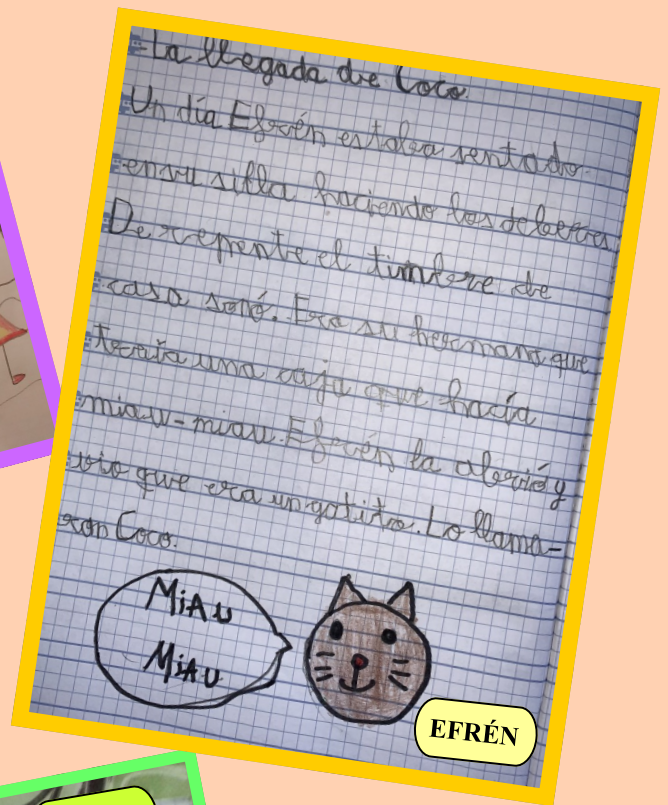 La llegada de Coco.
Un día Efrén estaba sentado
en su silla haciendo los deberes.
De repente el timbre de
casa sonó. Era su hermano que
traía una caja que hacía
miau-miau. Efrén la abrió y
vio que era un gatito. Lo llama-
ron Coco.
MiAu
MiAu
EFRÉN